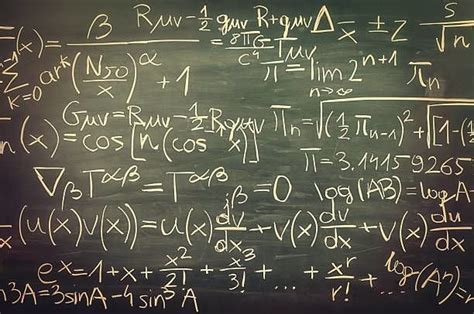 f(x) = β / ((N₅₀/x)^α + 1)
Rμν - ½ gμν R + gμν Λ = 8πG/c⁴ Tμν
x ± z s/√n
∑ k=0 ar^k
π = lim n→∞ 2^(n+1) πn
Gμν = Rμν - ½ R gμν
πn = √((½ πn-1)² + [1-(½
n(x) = cos[n(cos x)]
π = 3.14159265
∇β T^αβ = T^αβ β = 0
log(AB) = logA
(u(x)v(x)) = u(x) dv/dx + v(x) du/dx
dv/dx + v(x) du/dx
e^x = 1 + x + x²/2! + x³/3! + ... + x^r/r! + ...
log(Aⁿ) =
n3A = 3sinA - 4sin³A